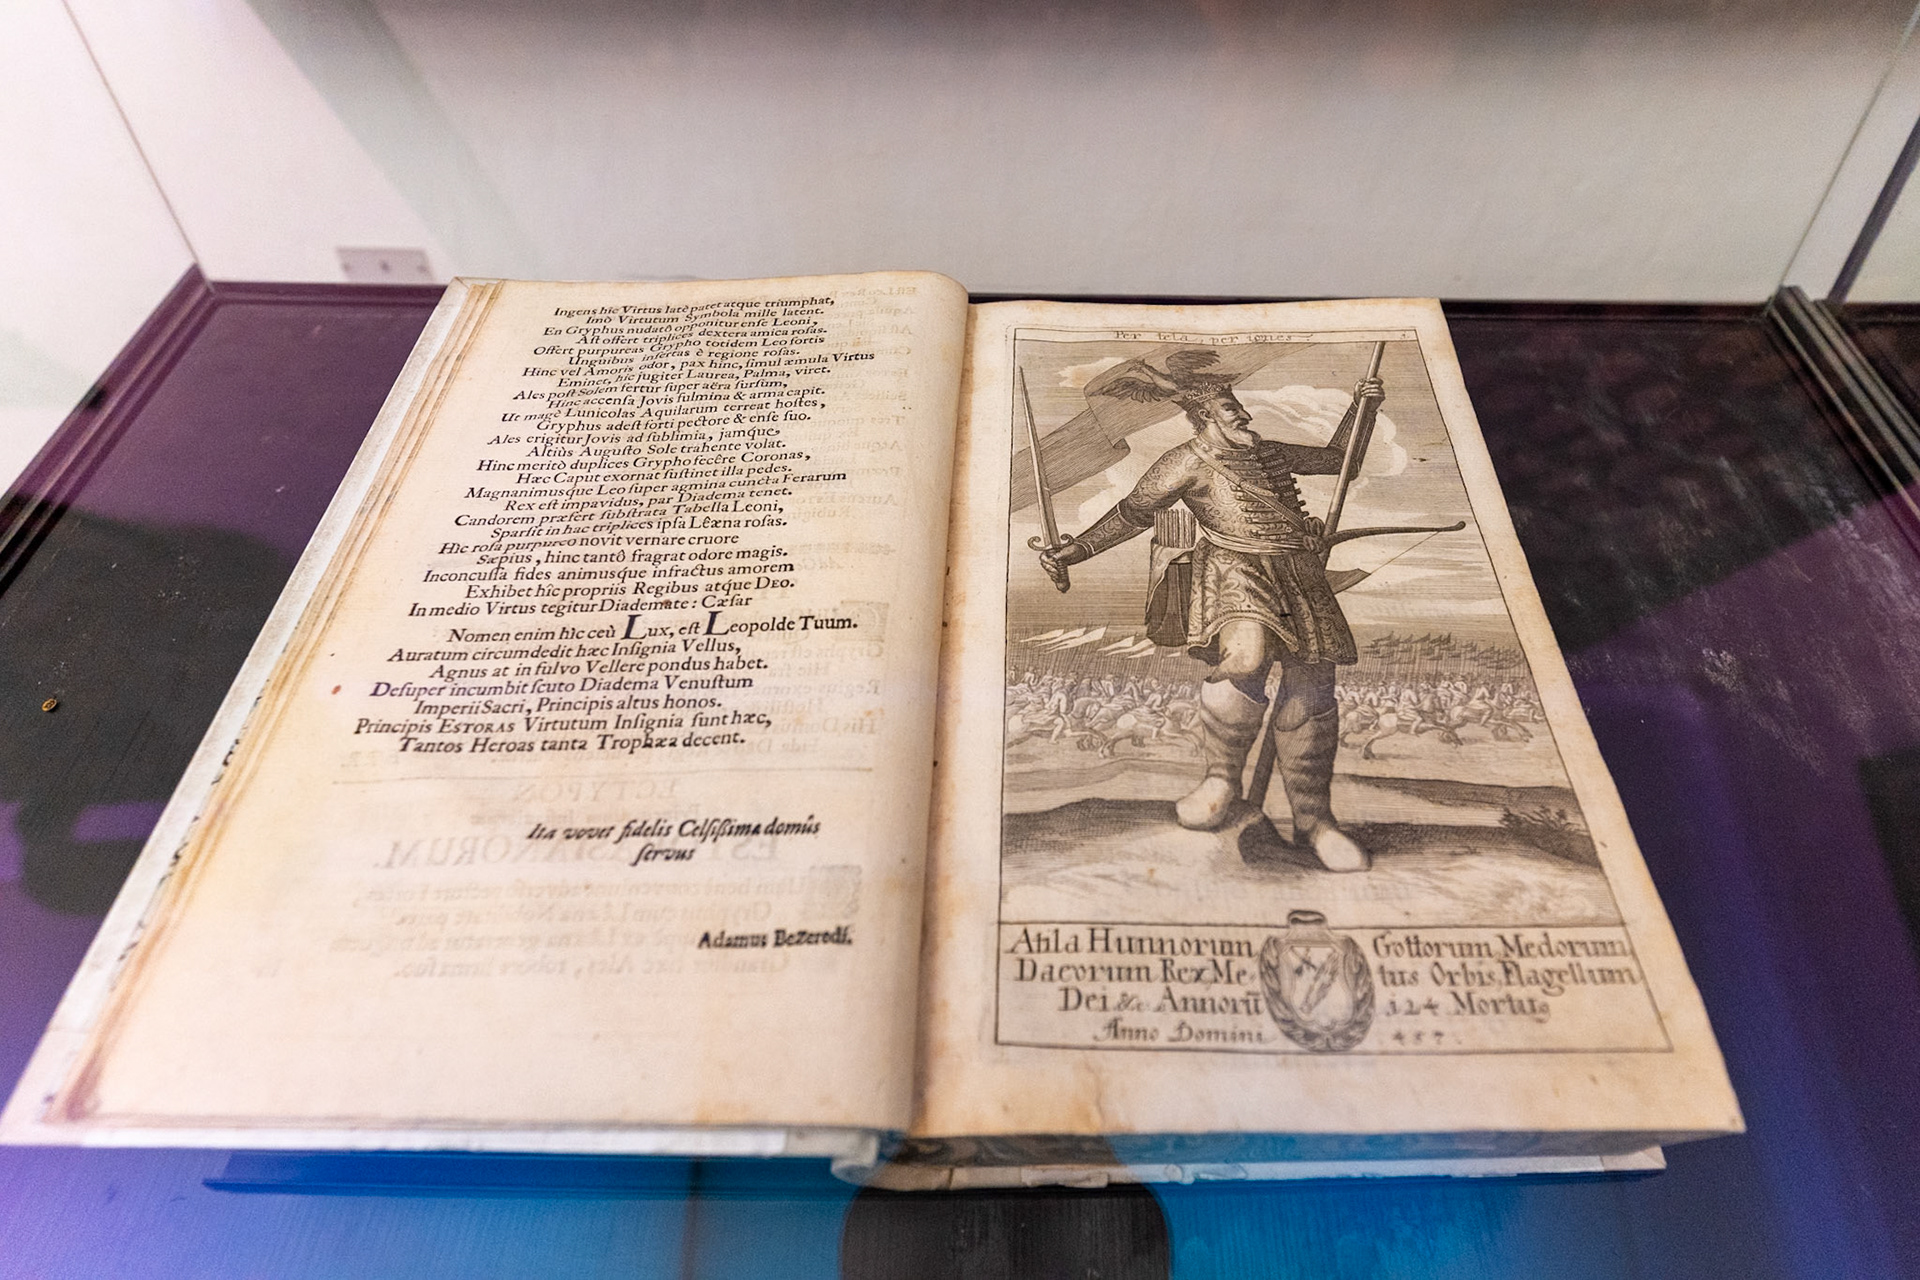 Ingens hîc Virtus latè patet atque triumphat,
Imò Virtutum Symbola mille latent.
En Gryphus nudatô opponitur ense Leoni,
Ast offert triplices dextera amica rosas.
Offert purpureas Grypho totidem Leo fortis
Unguibus insertas è regione rosas.
Hinc vel Amoris odor, pax hinc, simul æmula Virtus
Eminet, hîc jugiter Laurea, Palma, viret.
Ales post Solem fertur super aëra sursum,
Hinc accensa Jovis fulmina & arma capit.
Ut magè Lunicolas Aquilarum terreat hostes,
Gryphus adest forti pectore & ense suo.
Ales erigitur Jovis ad sublimia, jamque
Altiùs Augusto Sole trahente volat.
Hinc meritò duplices Grypho fecêre Coronas,
Hæc Caput exornat sustinet illa pedes.
Magnanimusque Leo super agmina cuncta Ferarum
Rex est impavidus, par Diadema tenet.
Candorem præfert substrata Tabella Leoni,
Sparsit in hac triplices ipsa Lêæna rosas.
Hîc rosa purpureo novit vernare cruore
Sæpius, hinc tantô fragrat odore magis.
Inconcussa fides animusque infractus amorem
Exhibet hîc propriis Regibus atque DEO.
In medio Virtus tegitur Diademate: Cæsar
Nomen enim hîc ceù Lux, est Leopolde Tuum.
Auratum circumdedit hæc Insignia Vellus,
Agnus at in fulvo Vellere pondus habet.
Desuper incumbit scuto Diadema Venustum
Imperii Sacri, Principis altus honos.
Principis ESTORAS Virtutum Insignia sunt hæc,
Tantos Heroas tanta Trophæa decent.
Ita vovet fidelis Celsissimæ domûs
servus
Adamus Bezeredi.
Per tela, per ignes
Atila Hunnorum Gottorum, Medorum,
Dacorum Rex, Me- tus Orbis, Flagellum
Dei &c Annorū 124 Mortuꝰ
Anno Domini 457